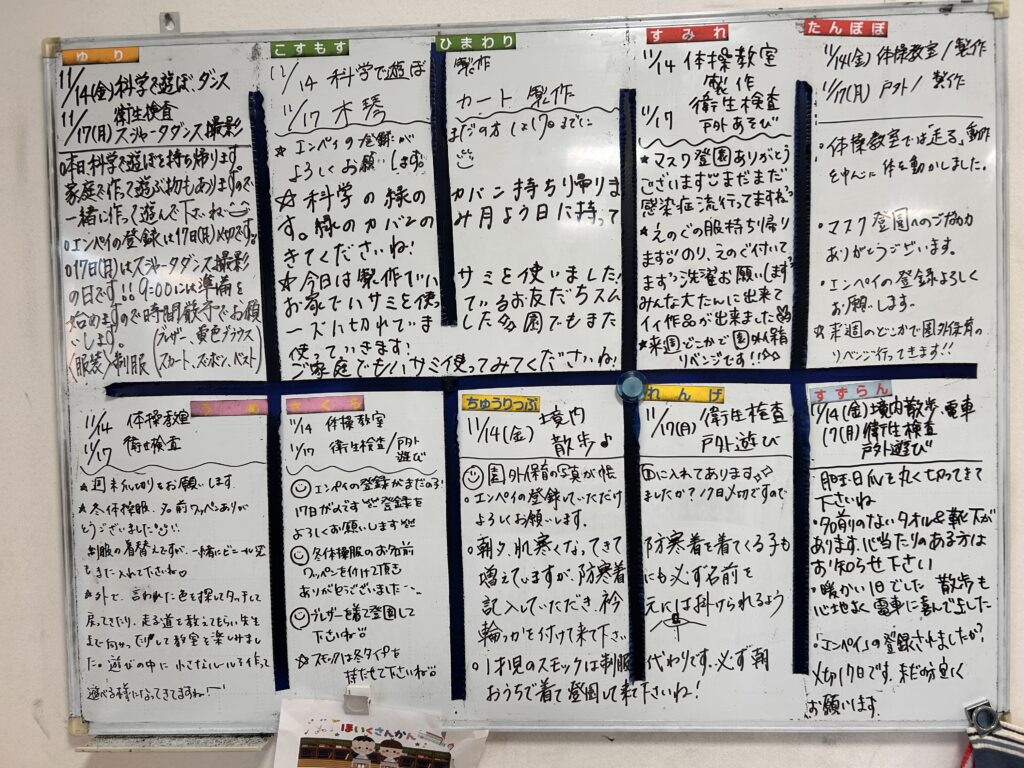 ゆり
11/14(金)科学で遊ぼ、ダンス
衛生検査
11/17(月)スジャータダンス撮影
○本日科学で遊ぼを持ち帰ります。
家庭で作って遊ぶ物もありますので
一緒に作って遊んで下さいね
○エンペイの登録は17日(月)〆切です
○17日(月)はスジャータダンス撮影
の日です!!9:00には準備を
始めますので時間厳守でお願
いします。
(ブレザー、黄色ブラウス
〈服装〉制服 (スカート、ズボン、ベスト)
こすもす
11/14 科学で遊ぼ
11/17 木琴
★エンペイの登録が
よろしくお願いします。
☆科学の緑の
す。緑のカバンの
きてくださいね!
☆今日は製作でハ
お家でハサミを使っ
ーズに切れていま
使っていきます!
ご家庭でもハサミ使ってみてくださいね!
ひまわり
製作
カート 製作
まだの方は17日までに
カバン持ち帰りま
み月よう日に持って
サミを使いました!
ているお友だちスム
した 園でもまた
すみれ
11/14 体操教室
製作
11/17 衛生検査
戸外あそび
★マスク登園ありがとう
ございます まだまだ
感染症流行ってますね
★えのぐの服持ち帰り
ます のり、えのぐ付いて
ます 洗濯お願いします
みんな大たんに出来て
イイ作品が出来ました
★来週どこかで園外保育
リベンジです!!
たんぽぽ
11/14(金) 体操教室/製作
11/17(月) 戸外/製作
・体操教室では「走る」動作
を中心に体を動かしました。
・マスク登園へのご協力
ありがとうございます。
・エンペイの登録よろしく
お願いします。
☆来週のどこかで園外保育の
リベンジ行ってきます!!
うめ
11/14 体操教室
11/17 衛生検査
★週末爪切りをお願いします。
★冬体操服、名前ワッペンありが
とうございました
制服の着替えですが、一緒にビニール袋
もまた入れて下さいね
★外で、言われた色を探してタッチして
戻ってきたり、走る道を教えてもらい先生
まで向かったりして教室を楽しみまし
た。遊びの中に小さなルールも作って
遊べる様になってきてますね!
さくら
11/14 体操教室
11/17 衛生検査/戸外
遊び
エンペイの登録がまだの方!
17日が〆です 登録を
よろしくお願いします
冬体操服のお名前
ワッペンを付けて頂き
ありがとうございました
ブレザーを着て登園して
下さいね
☆スモックは冬タイプを
持たせて下さいね
ちゅうりっぷ
11/14(金) 境内
散歩♪
園外保育の写真が帳
・エンペイの登録していただけ
よろしくお願いします。
・朝夕、肌寒くなってきて
増えていますが、防寒着
記入していただき、衿
輪っかを付けて来て下さい
・1才児のスモックは制服
おうちで着て登園して来て下さいね!
れんげ
11/17(月)/衛生検査
戸外遊び
面に入れてあります
ましたか?17日〆切ですので
防寒着を着てくる子も
にも必ず名前を
元には掛けられるよう
代わりです。必ず朝
すずらん
11/14(金)境内散歩、電車
17(月)衛生検査
戸外遊び
・月曜日爪を丸く切ってきて
下さいね
・名前のないタオル&靴下が
あります。心当たりのある方は
お知らせ下さい
・暖かい1日でした 散歩も
心地よく電車に喜んでました
・「エンペイ」の登録されましたか?
〆切17日です。まだの方宜しく
お願いします。
ほいくさんかん